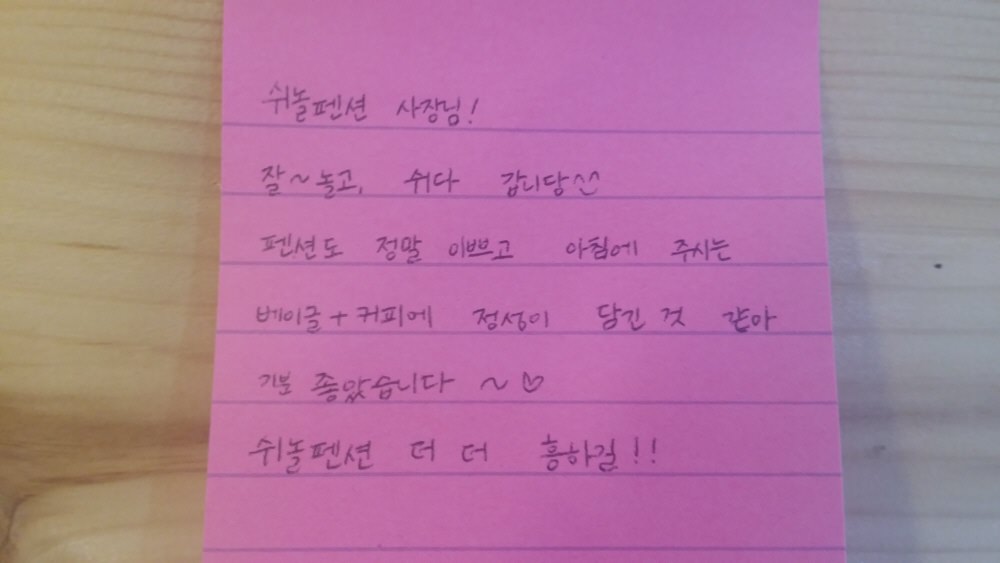 쉬놀펜션 사장님!
잘~놀고, 쉬다 갑니담^^
펜션도 정말 이쁘고 아침에 주시는
베이글+커피에 정성이 담긴 것 같아
기분 좋았습니다 ~♡
쉬놀펜션 더 더 흥하길!!